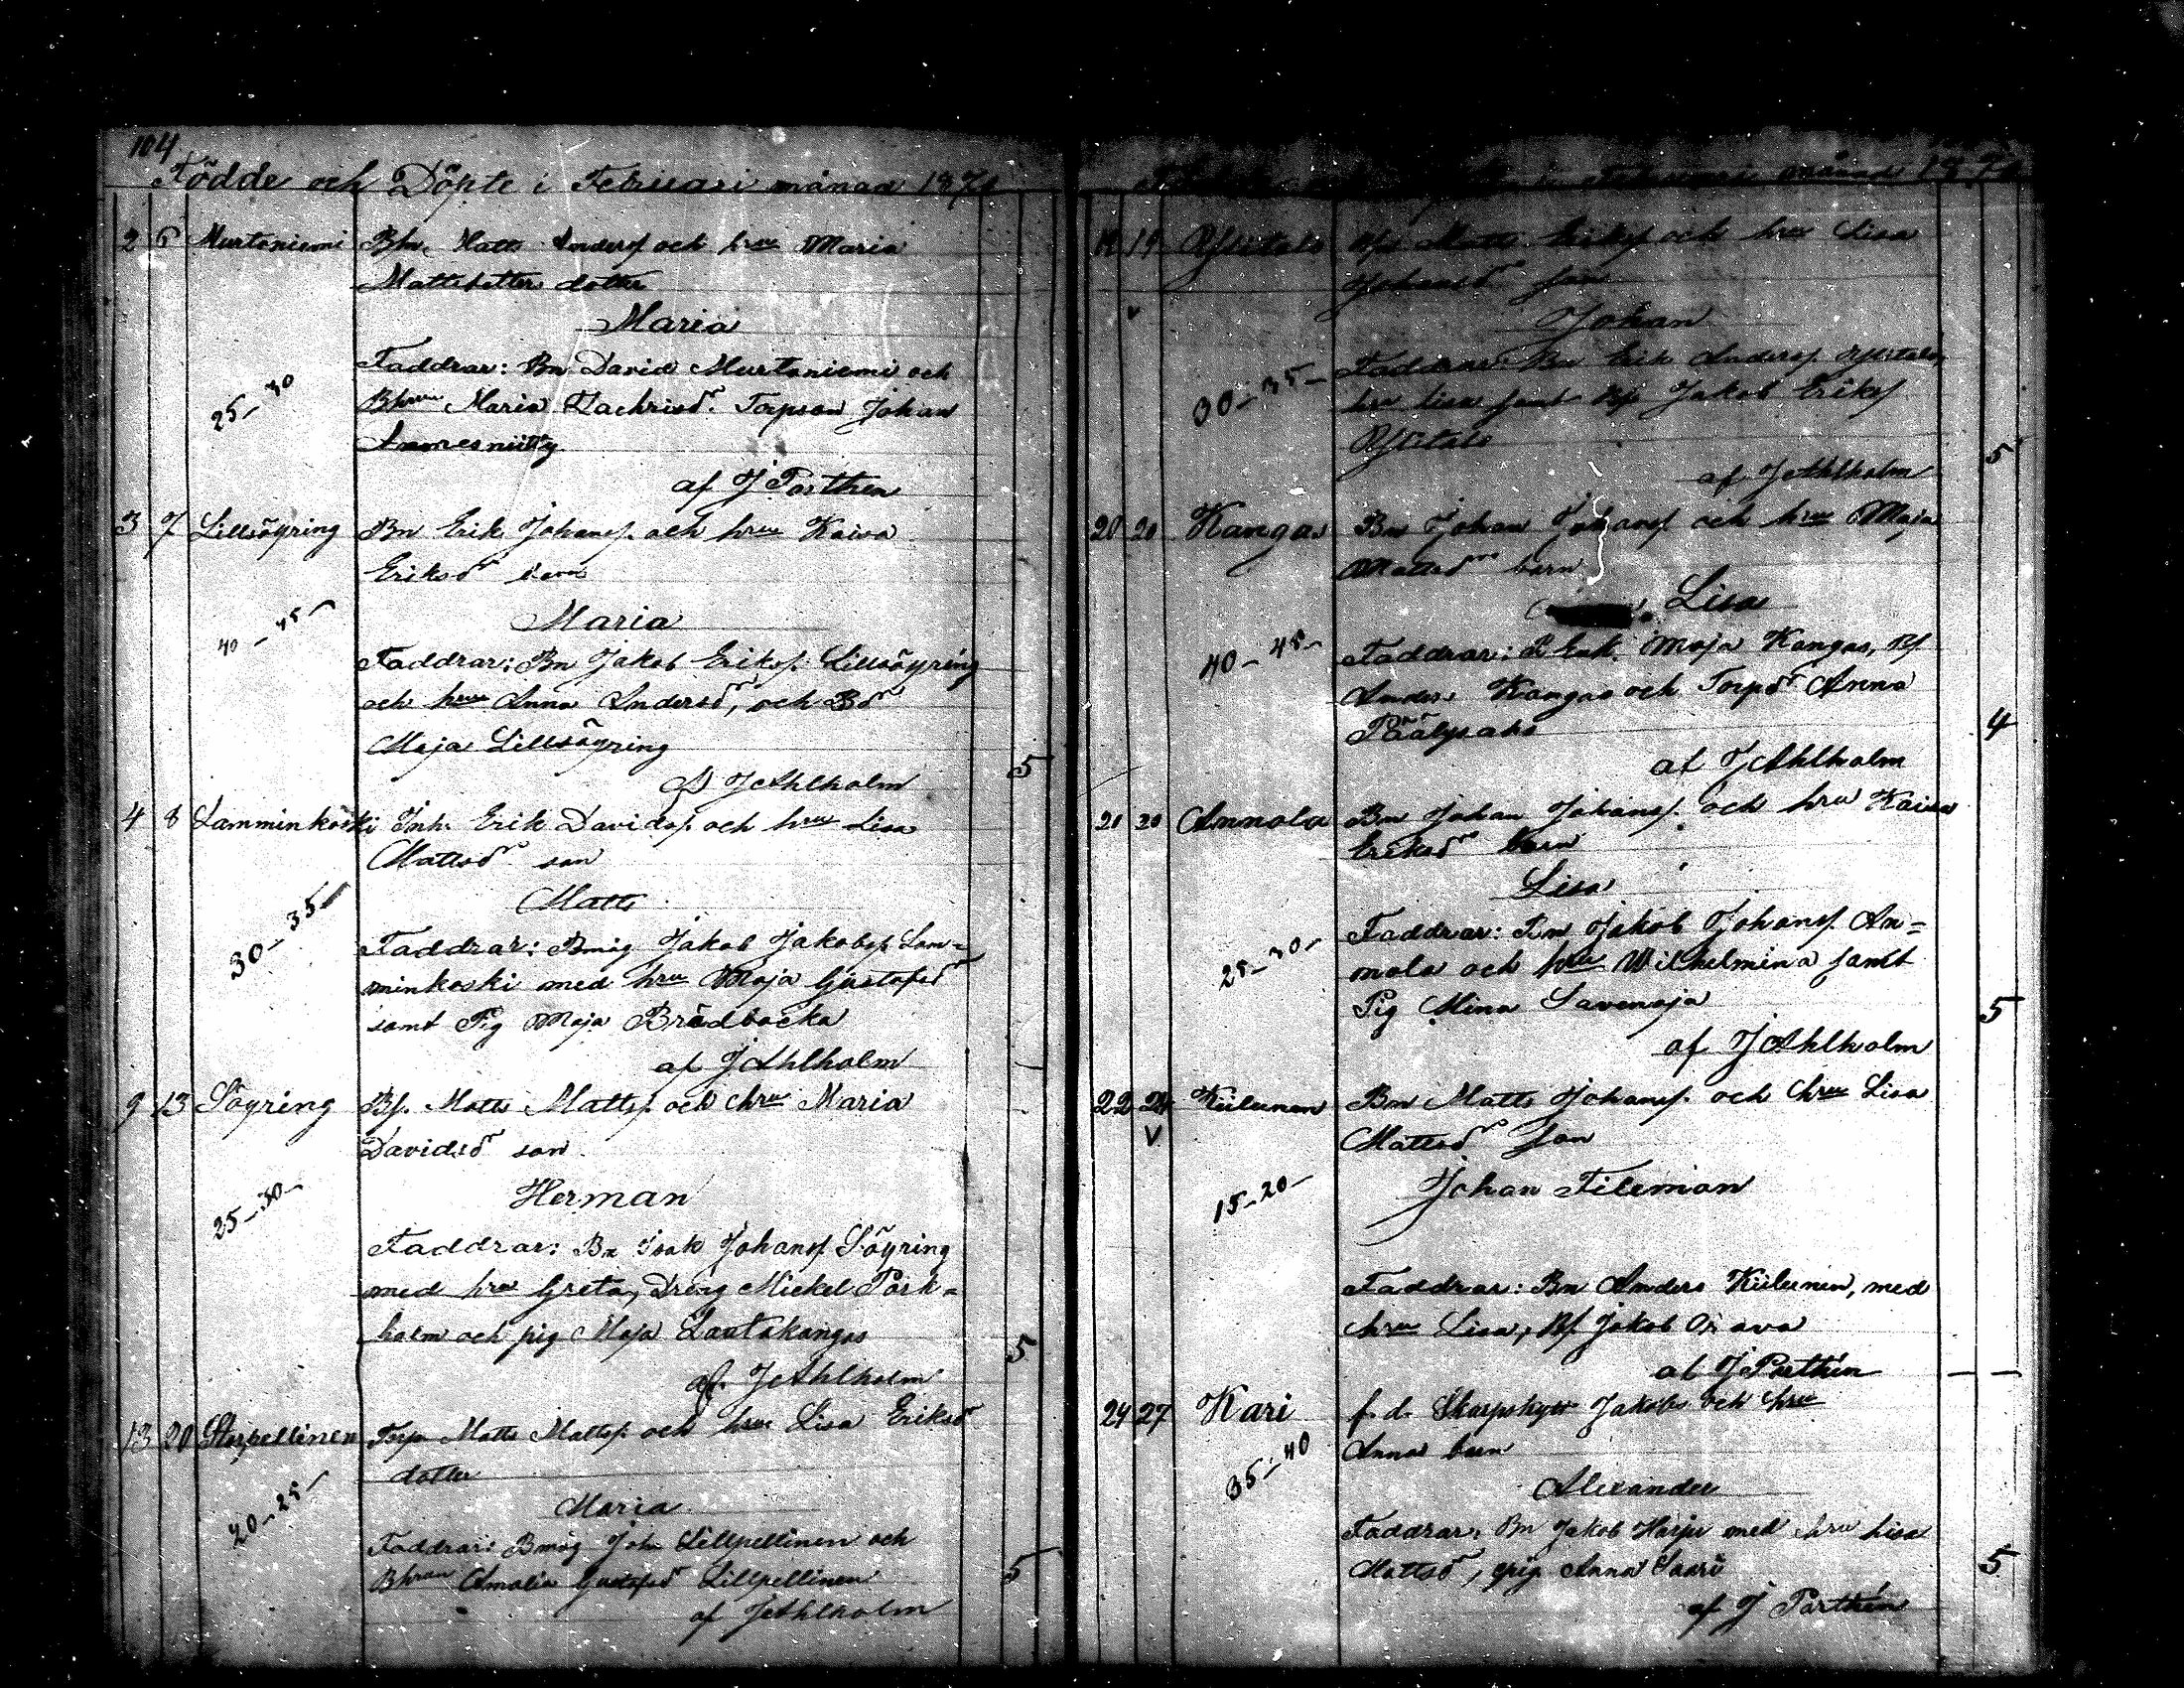 104
Födde och Döpte i Februari månad 187
2 6 Murtoniemi Bm Matts Andersf och hru Maria
Mattsdotters dotter
Maria
Faddrar: Bn David Murtoniemi och
25-30 Bhrun Maria Zachrisdr. Torpson Johan
Ammesniitty
af J Parthen
3 7 Lillsöyring Bn Erik Johansf. och hru Kaisa
Eriksdr barn
Maria
40-45 Faddrar: Bn Jakob Eriksf. Lillsöyring
och hru Anna Andersdr, och Bdr
Maja Lillsöyring
af J Ahlholm 5
4 8 Lamminkoski Inh. Erik Davidsf. och hru Lisa
Mattsdr son
Matts
30-35 Faddrar: Bmåg Jakob Jakobsf. Lam=
minkoski med hru Maja Gustafsdr
samt Pig Maja Brådbacka
af J Ahlholm
9 13 Söyring Bf. Matts Mattsf. och hru Maria
Davidsdr son
25-30 Herman
Faddrar: Bn Isak Johansf Söyring
med hru Greta, Dreng Mickel Pärk=
holm och pig Maja Lautakangas 5
af. J Ahlholm
13 20 Storpellinen Torp. Matts Mattsf. och hru Lisa Eriksdr
dotter
20-25 Maria
Faddrar: Bmåg Joh Lillpellinen och
Bhrun Amalia Gustafsdr Lillpellinen 5
af J Ahlholm
19 19 Matts Eriksf och hru Lisa
Johansdr son
Johan
-35 Faddrar: Bn Erik Andersf
hru Lisa samt Bf Jakob Eriksf
5
af J Ahlholm
20 20 Kangas Bn Johan Johansf och hru Maja
Mattsdr barn
Lisa
40-45 Faddrar: Enk. Maja Kangas, Bf
Anders Kangas och Torpdr Anna
Päälysaho 4
af J Ahlholm
21 20 Annala Bn Johan Johansf. och hru Kaisa
Eriksdr barn
Lisa
25-30 Faddrar: Bn Jakob Johansf. An=
nala och hru Wilhelmina samt
Pig Mina Savenoja 5
af J Ahlholm
22 24 Kiilunen Bn Matts Johansf. och hru Lisa
V Mattsdr son
15-20 Johan Fileman
Faddrar: Bn Anders Kiilunen, med
hru Lisa, Bf Jakob
af J Parthén
24 27 Kari f. d. Skarpskytt Jakob och hru
Anna barn
35-40 Alexander
Faddrar. Bn Jakob Harju med hru Lisa
Mattsdr, pig Anna Saari 5
af J Parthén